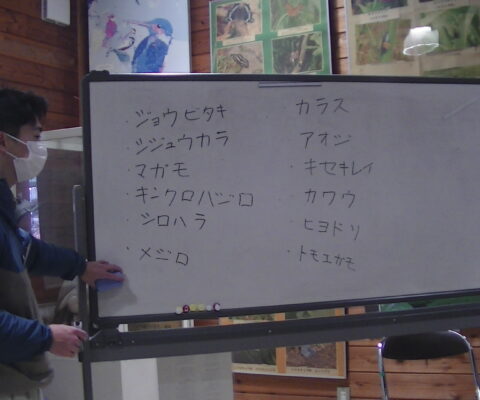 ・ジョウビタキ
・シジュウカラ
・マガモ
・キンクロハジロ
・シロハラ
・メジロ
・カラス
・アオジ
・キセキレイ
・カワウ
・ヒヨドリ
・トモエガモ